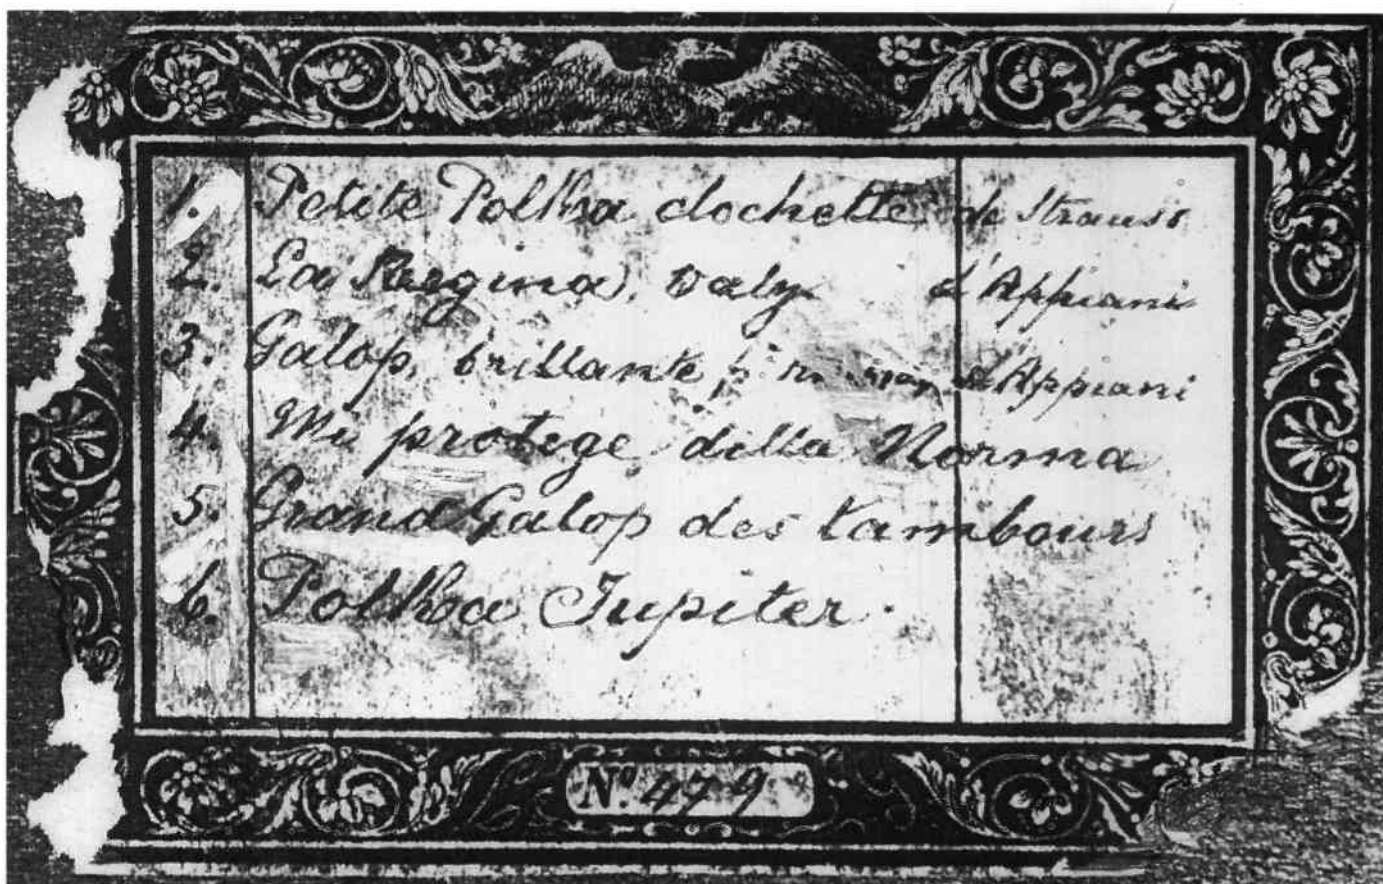 1. Petite Polka clochette de Strauss
2. La Regina, valz d'Appiani
3. Galop, brillante d'Appiani
4. Mi protege della Norma
5. Grand Galop des tambours
6. Polka Jupiter.
Nº. 479